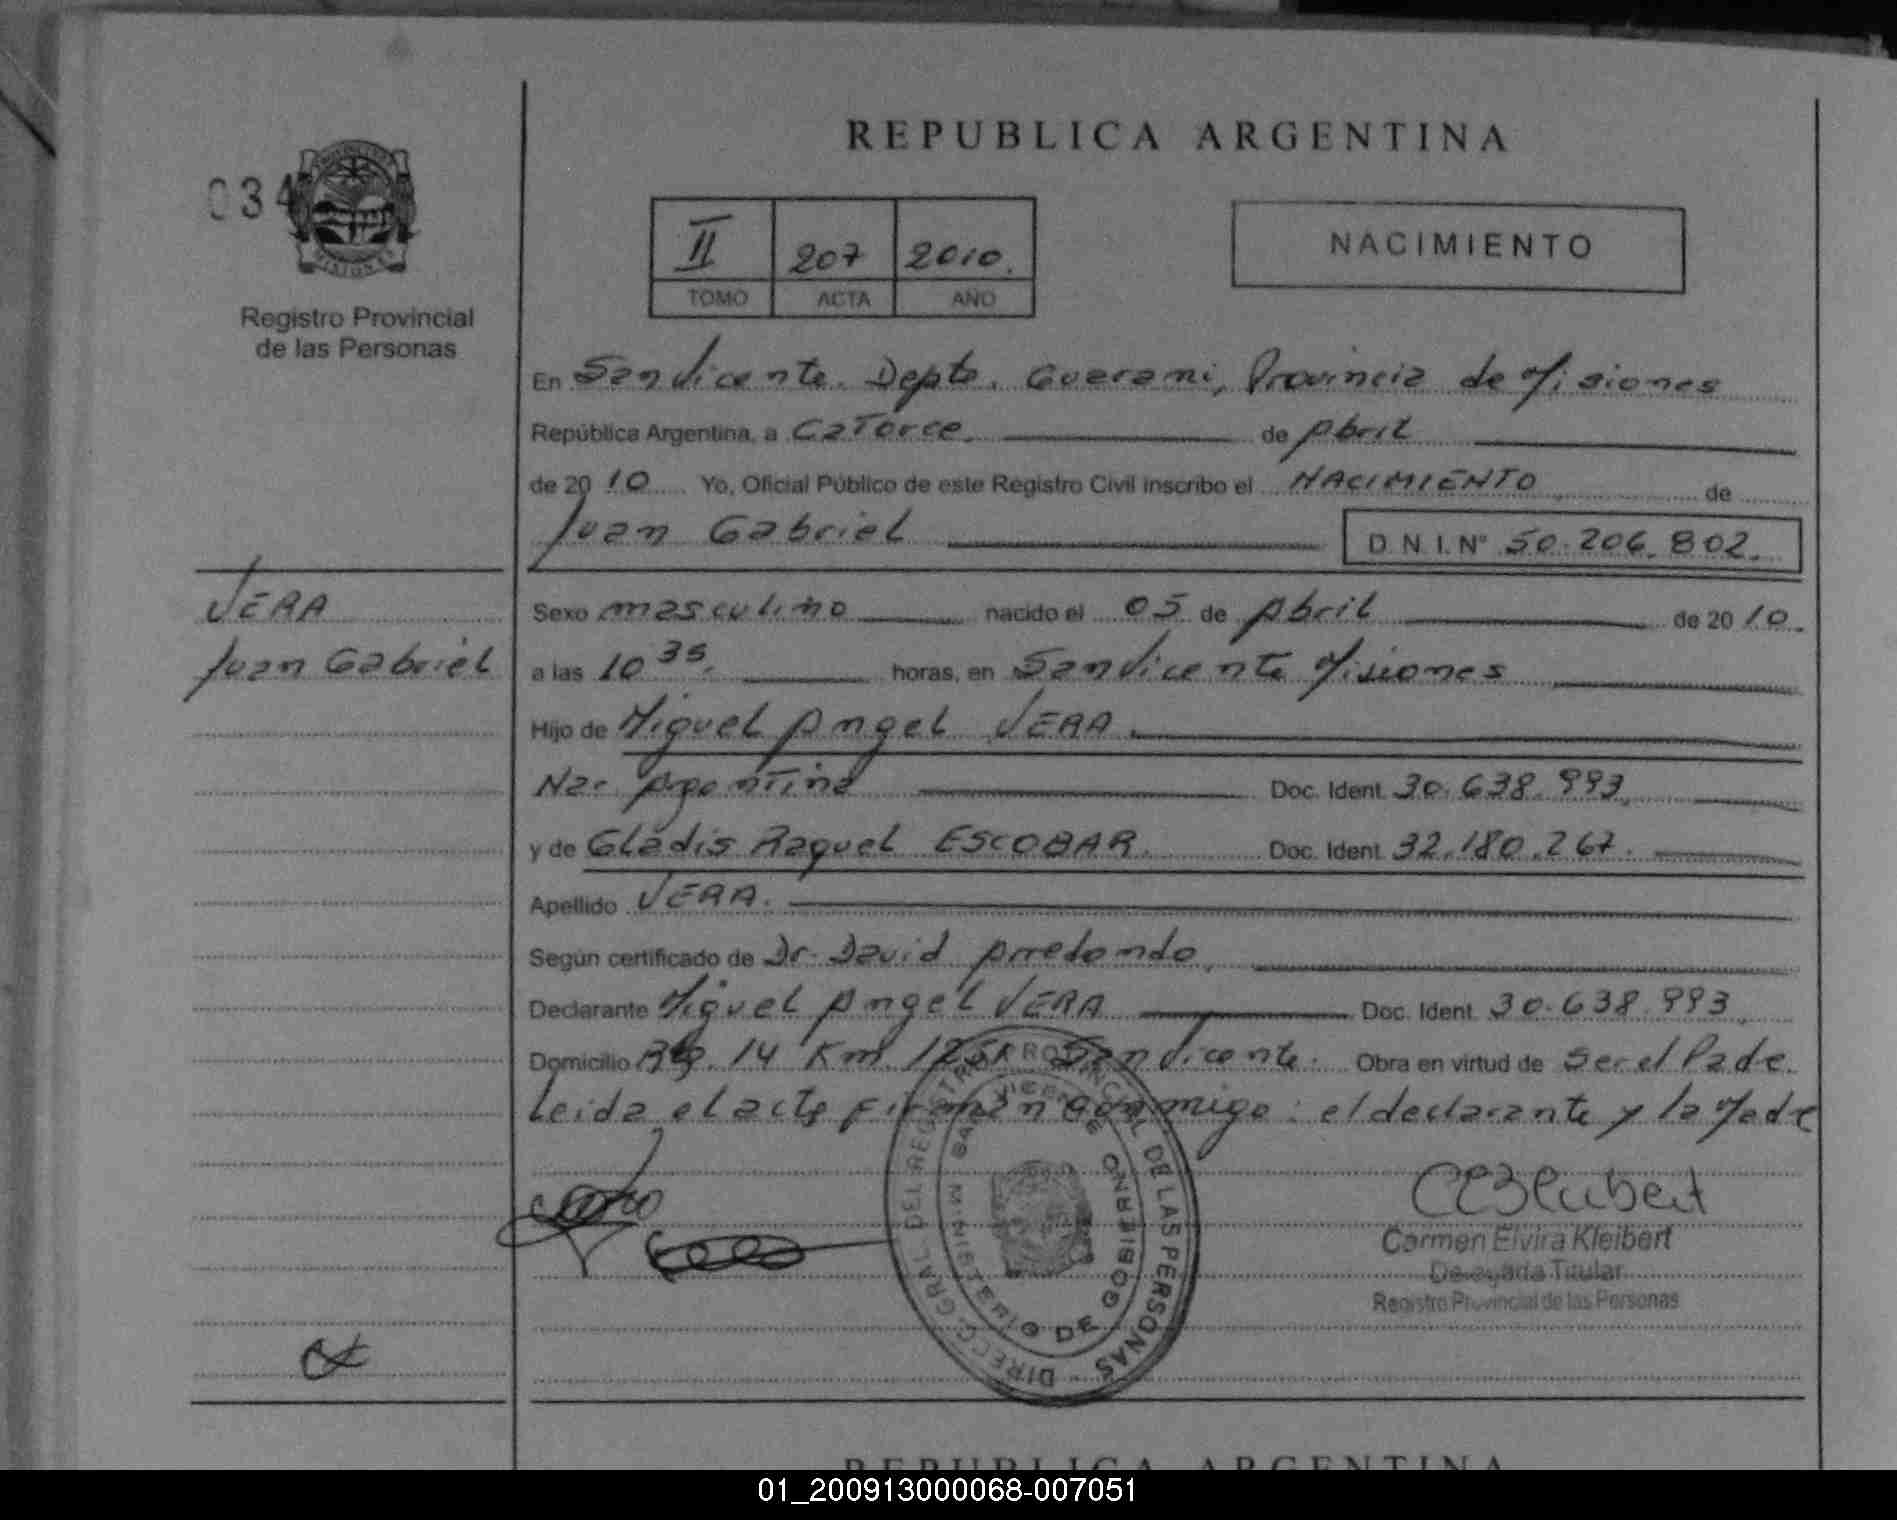 REPUBLICA ARGENTINA
034
II 207 2010.
TOMO ACTA AÑO
NACIMIENTO
Registro Provincial
de las Personas
En San Vicente. Depto. Guarani, Provincia de Misiones
República Argentina, a Catorce. de Abril
de 2010 Yo, Oficial Público de este Registro Civil inscribo el NACIMIENTO de
Juan Gabriel D.N.I.Nº 50.206.802.
VERA
Juan Gabriel
Sexo masculino nacido el 05 de Abril de 2010.
a las 10 35. horas, en San Vicente Misiones
Hijo de Miguel Angel VERA.
Nac Argentina Doc. Ident. 30.638.993.
y de Gladis Raquel ESCOBAR. Doc. Ident. 32.180.267.
Apellido VERA.
Según certificado de Dr. David Arredondo.
Declarante Miguel Angel VERA Doc. Ident. 30.638.993.
Domicilio 14 Km. San Vicente. Obra en virtud de Ser el Padre.
Leida el acta Firman Conmigo: el declarante y la Madre
DIREC. GRAL. DEL REGISTRO PROVINCIAL DE LAS PERSONAS
MINISTERIO DE GOBIERNO
SAN VICENTE
Carmen Elvira Kleibert
Delegada Titular
Registro Provincial de las Personas
REPUBLICA ARGENTINA
01_200913000068-007051